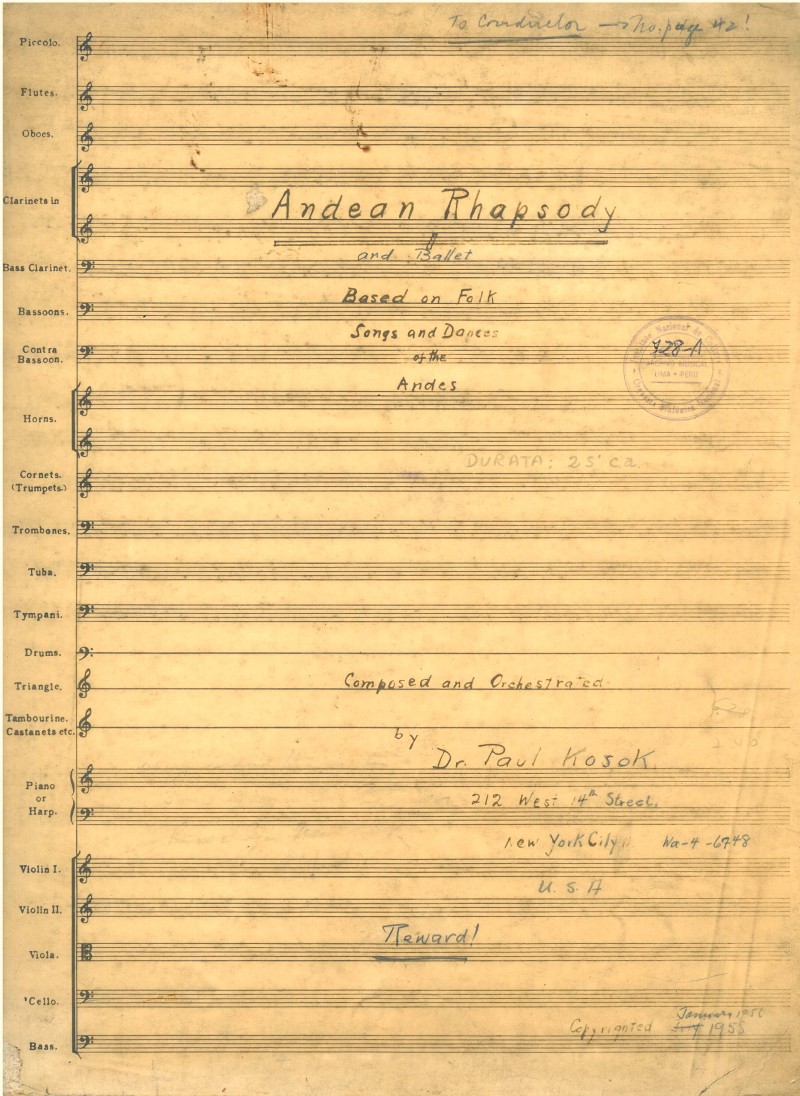 To Conductor → No. page 42!
Piccolo.
Flutes.
Oboes.
Clarinets in
Andean Rhapsody
and Ballet
Bass Clarinet.
Based on Folk
Bassoons.
Songs and Dances
of the
Contra
Bassoon.
728-A
LIMA - PERU
Andes
Horns.
DURATA: 25' ca.
Cornets.
(Trumpets.)
Trombones.
Tuba.
Tympani.
Drums.
Triangle.
Composed and Orchestrated
Tambourine.
Castanets etc.
by
Dr. Paul Kosok
Piano
or
Harp.
212 West 14th Street.
New York City Wa-4-6748
Violin I.
U. S. A
Violin II.
Reward!
Viola.
'Cello.
January 1956
Copyrighted 1955
Bass.